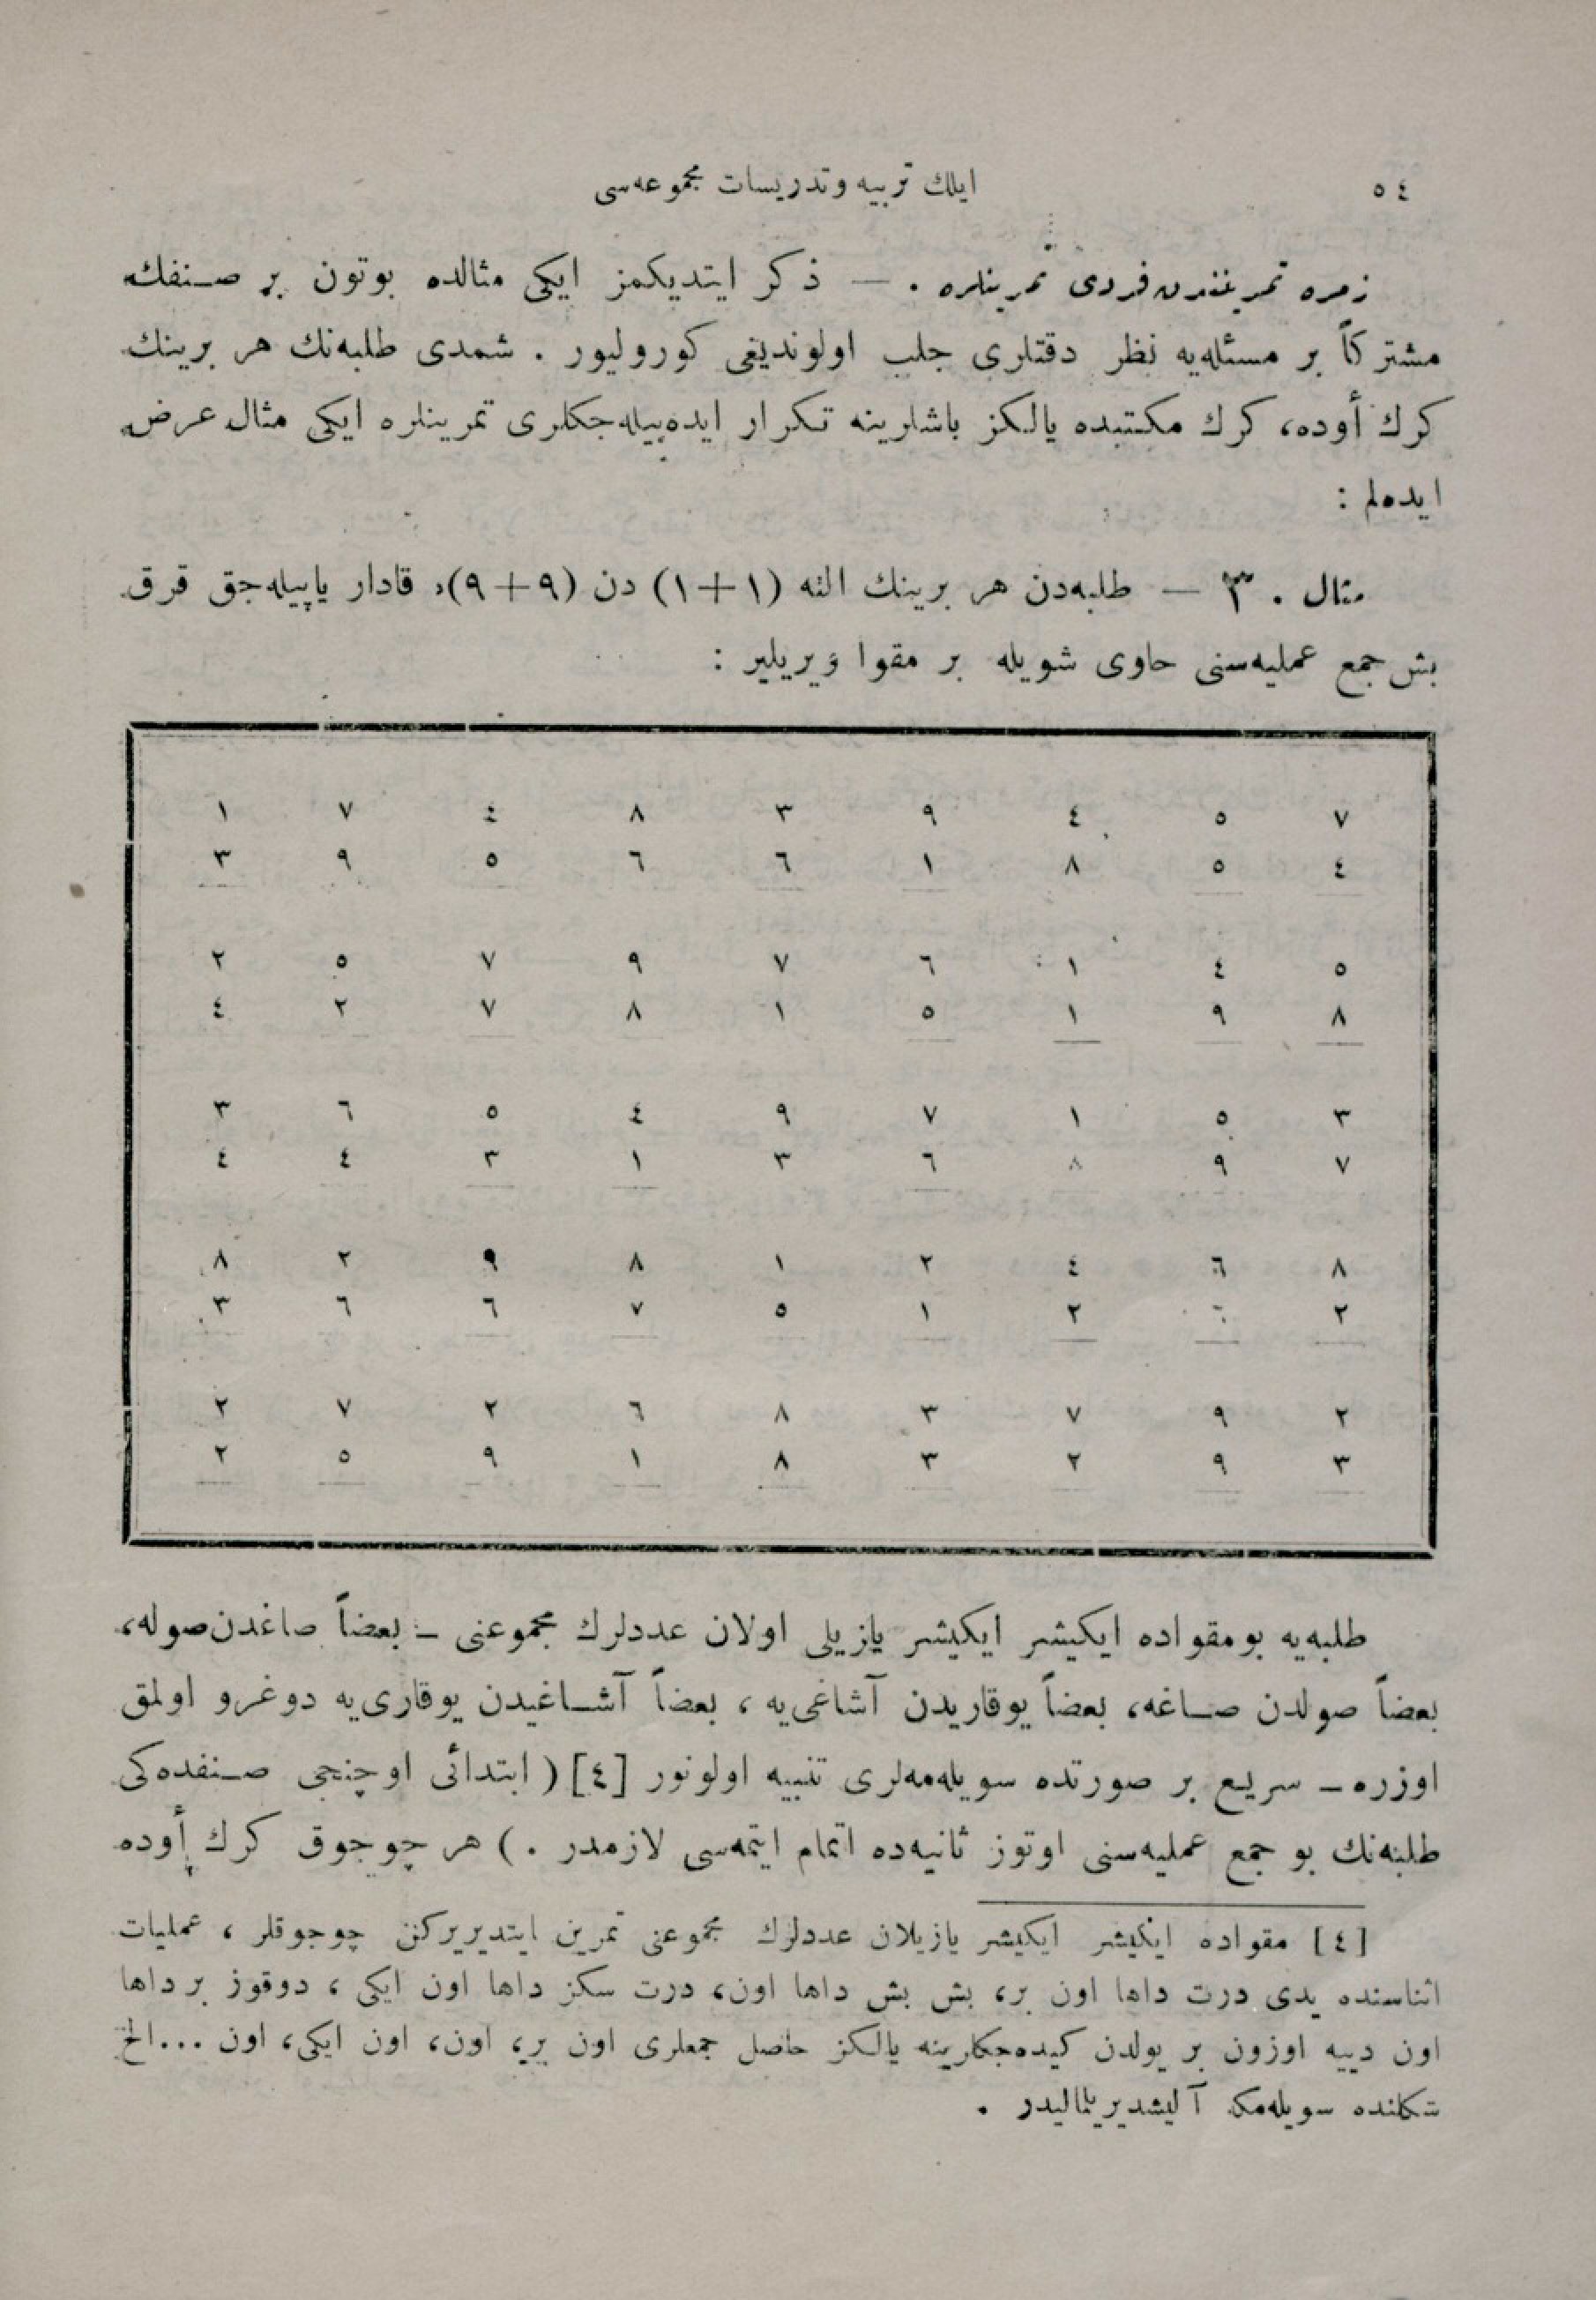 ٥٤
ایلك تربیه وتدریسات مجموعه‌سی
زمره تمریننندن فردی تمرینلره . — ذکر ایتدیکمز ایکی مثالده بوتون بر صنفك
مشترکاً بر مسئله‌یه نظر دقتلری جلب اولوندیغی کورولیور . شمدی طلبه‌نك هر برینك
کرك أوده، کرك مکتبده یالکز باشلرینه تکرار ایده‌بیله‌جکلری تمرینلره ایکی مثال عرض
ایده‌لم :
مثال . ٣ — طلبه‌دن هر برینك النه (١+١) دن (٩+٩)ه قادار یاپیله‌جق قرق
بش جمع عملیه‌سنی حاوی شویله بر مقوا ویریلیر :
١ ٧ ٤ ٨ ٣ ٩ ٤ ٥ ٧
٣ ٩ ٥ ٦ ٦ ١ ٨ ٥ ٤
٢ ٥ ٧ ٩ ٧ ٦ ١ ٤ ٥
٤ ٢ ٧ ٨ ١ ٥ ١ ٩ ٨
٣ ٦ ٥ ٤ ٩ ٧ ١ ٥ ٣
٤ ٤ ٣ ١ ٣ ٦ ٨ ٩ ٧
٨ ٢ ٩ ٨ ١ ٢ ٤ ٦ ٨
٣ ٦ ٦ ٧ ٥ ١ ٢ ٦ ٢
٢ ٧ ٢ ٦ ٨ ٣ ٧ ٩ ٢
٢ ٥ ٩ ١ ٨ ٣ ٢ ٩ ٣
طلبه‌یه بو مقواده ایکیشر ایکیشر یازیلی اولان عددلرك مجموعنی — بعضاً صاغدن صوله،
بعضاً صولدن صاغه، بعضاً یوقاریدن آشاغی‌یه ، بعضاً آشاغیدن یوقاری‌یه دوغرو اولمق
اوزره — سریع بر صورتده سویله‌مه‌لری تنبیه اولونور [٤] ( ابتدائی اوچنجی صنفده‌کی
طلبه‌نك بو جمع عملیه‌سنی اوتوز ثانیه‌ده اتمام ایتمه‌سی لازمدر . ) هر چوجوق کرك أوده
[٤] مقواده ایکیشر ایکیشر یازیلان عددلرك مجموعنی تمرین ایتدیریرکن چوجوقلر ، عملیات
اثناسنده یدی درت داها اون بر، بش بش داها اون، درت سکز داها اون ایکی ، دوقوز بر داها
اون دییه اوزون بر یولدن کیده‌جکلرینه یالکز حاصل جمعلری اون بر، اون، اون ایکی، اون ...الخ
شکلنده سویله‌مکه آلیشدیریلمالیدر .